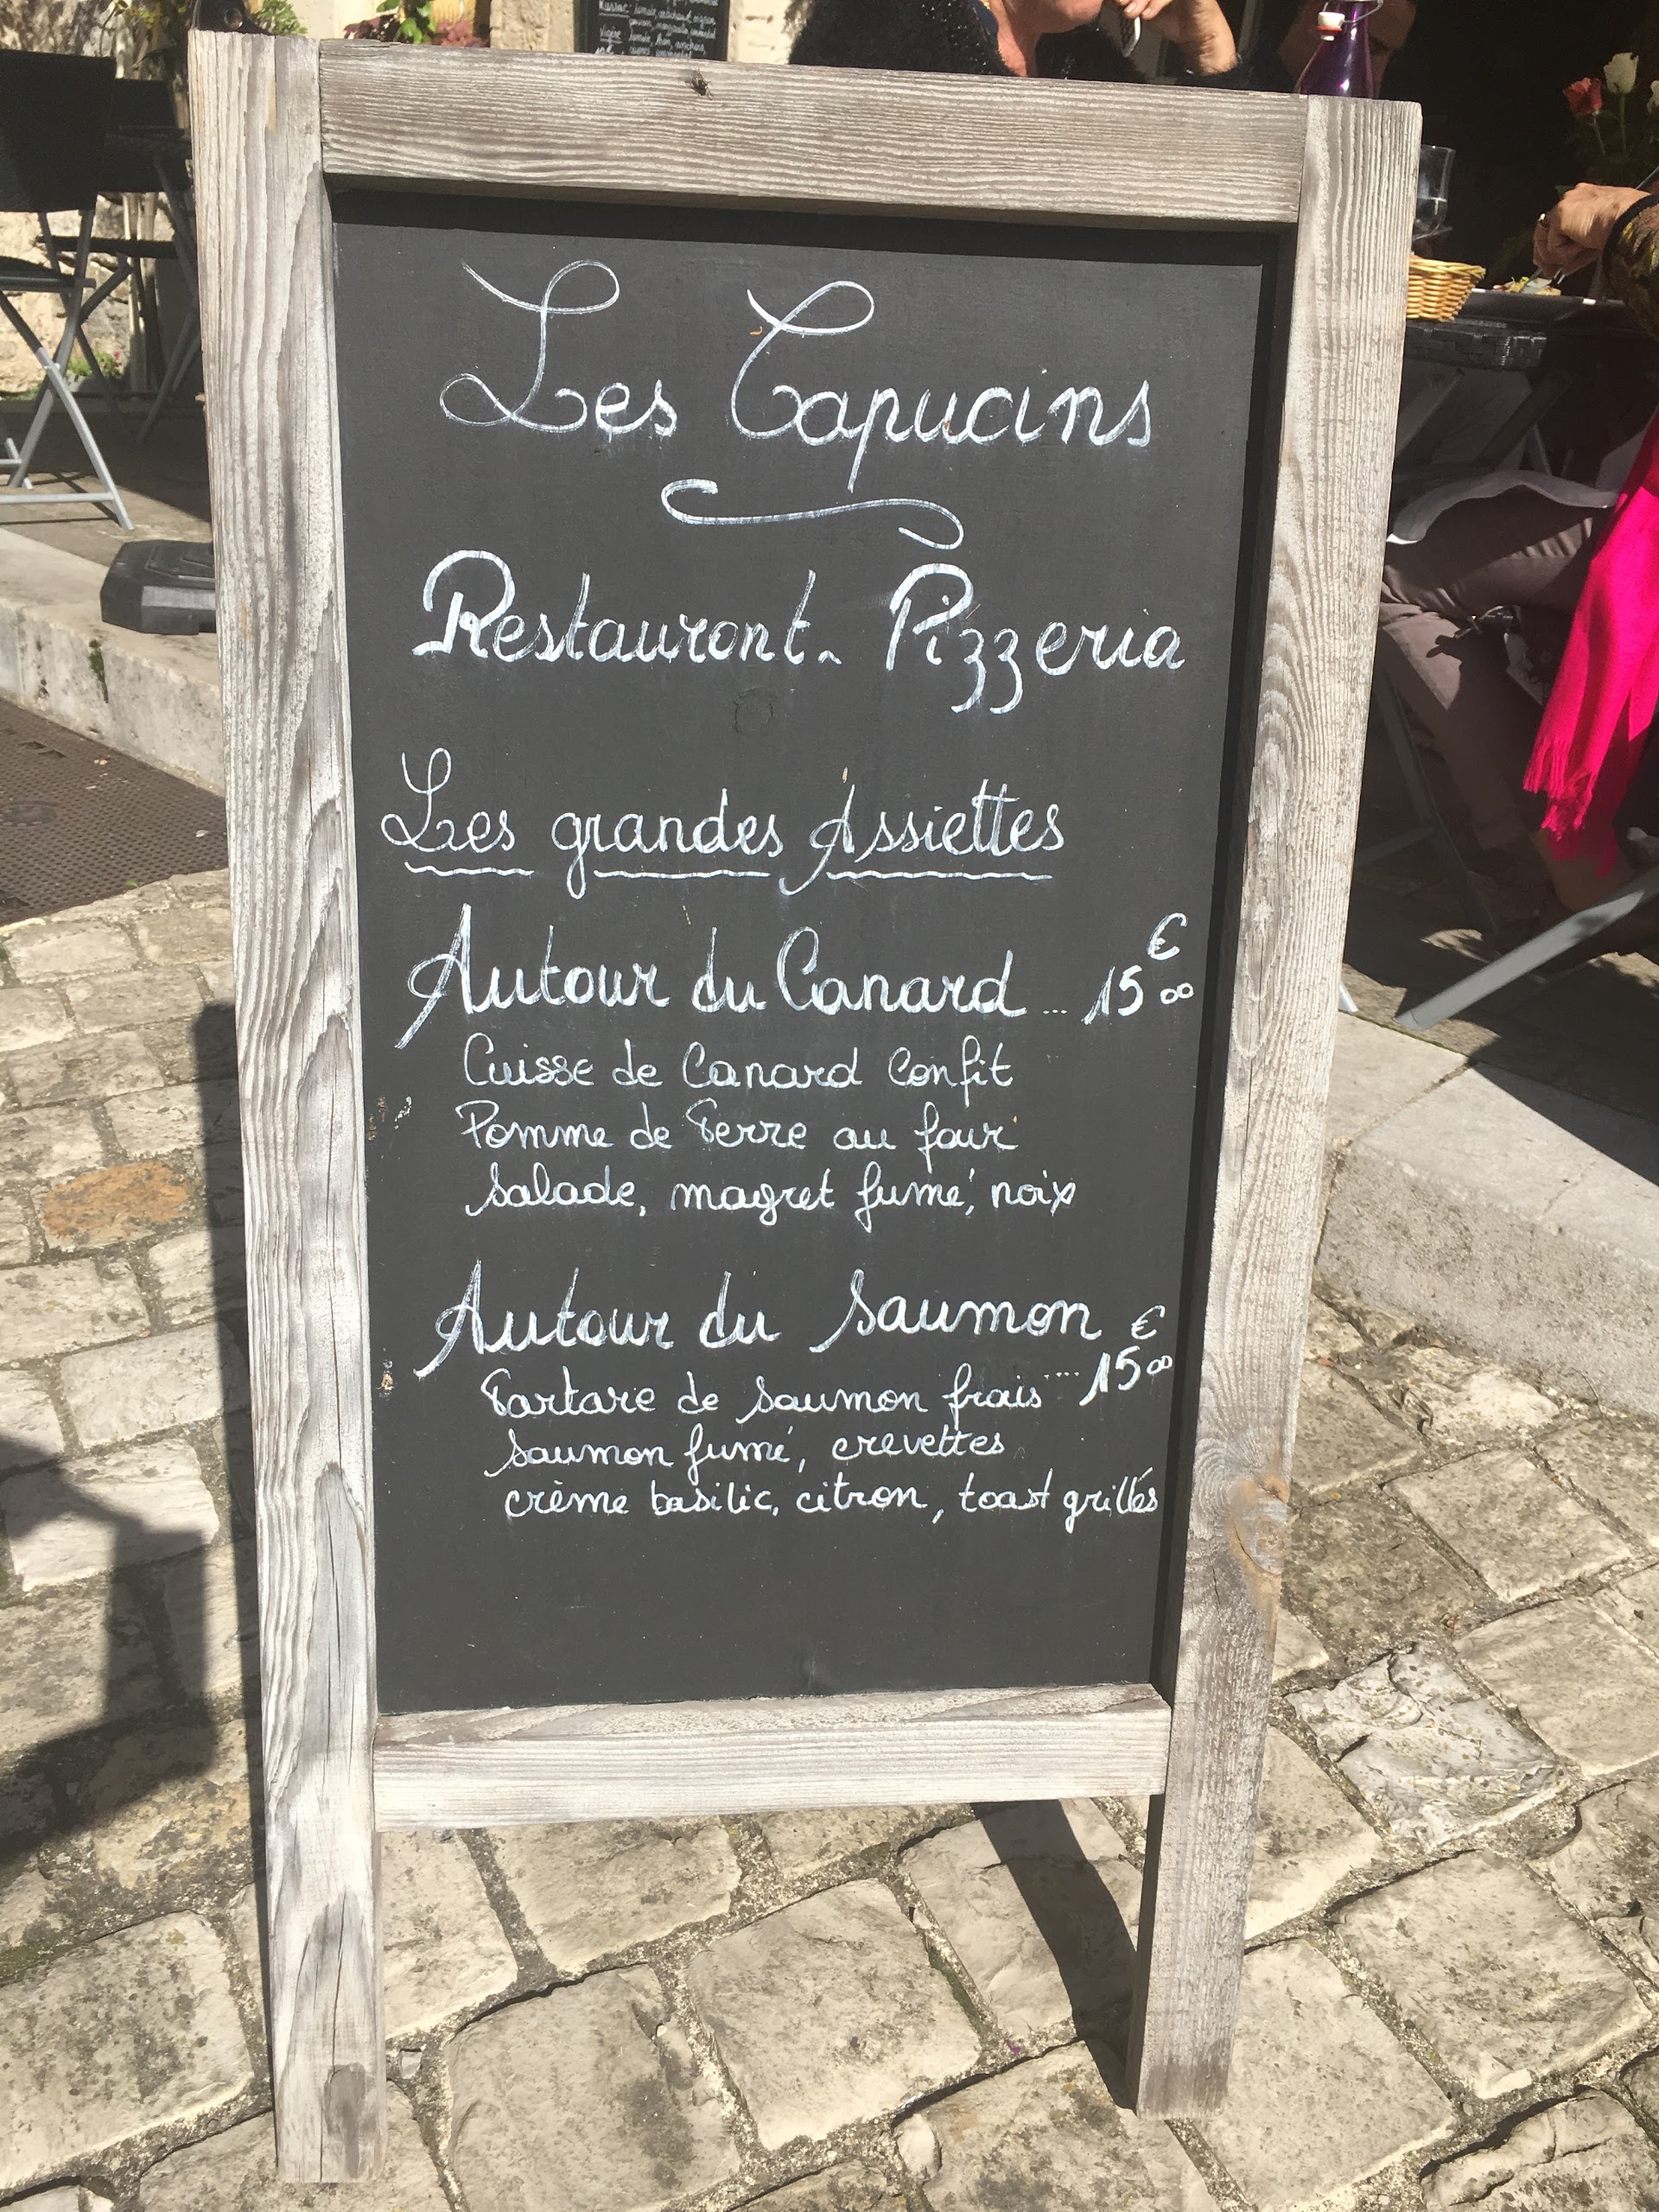 Les Capucins
Restaurant - Pizzeria
Les grandes Assiettes
Autour du Canard ... 15€00
Cuisse de Canard Confit
Pomme de Terre au four
Salade, magret fumé, noix
Autour du Saumon
Tartare de Saumon frais .... 15€00
Saumon fumé, crevettes
crème basilic, citron, toast grillés